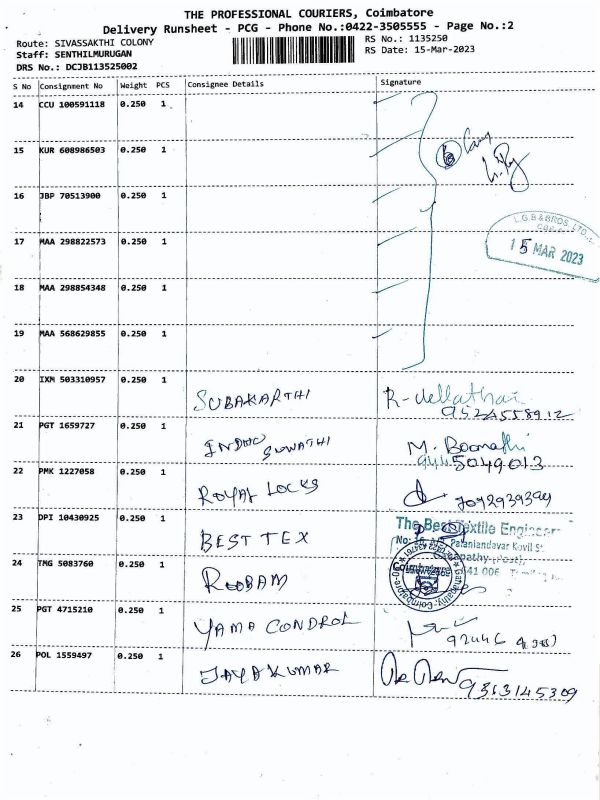 THE PROFESSIONAL COURIERS, Coimbatore
Delivery Runsheet - PCG - Phone No.:0422-3505555 - Page No.:2
Route: SIVASSAKTHI COLONY
RS No.: 1135250
Staff: SENTHILMURUGAN
RS Date: 15-Mar-2023
DRS No.: DCJB113525002
S No Consignment No Weight PCS Consignee Details Signature
14 CCU 100591118 0.250 1
15 KUR 608986503 0.250 1
16 JBP 70513900 0.250 1
L.G.B & BROS. LTD.,
17 MAA 298822573 0.250 1
15 MAR 2023
18 MAA 298854348 0.250 1
19 MAA 568629855 0.250 1
20 IXM 503310957 0.250 1
SUBAKARTHI R-dellathai
9524558912
21 PGT 1659727 0.250 1
INDHU SUWATHI M. Boomathi
9445049013
22 PMK 1227058 0.250 1
ROYAL LOCKS 7092939399
23 DPI 10430925 0.250 1
The Best Textile Engineer
BEST TEX
24 TMG 5083760 0.250 1
ROOBAM
25 PGT 4715210 0.250 1
YAMA CONDROL
92446
26 POL 1559497 0.250 1
JAYAKUMAR 9363145309